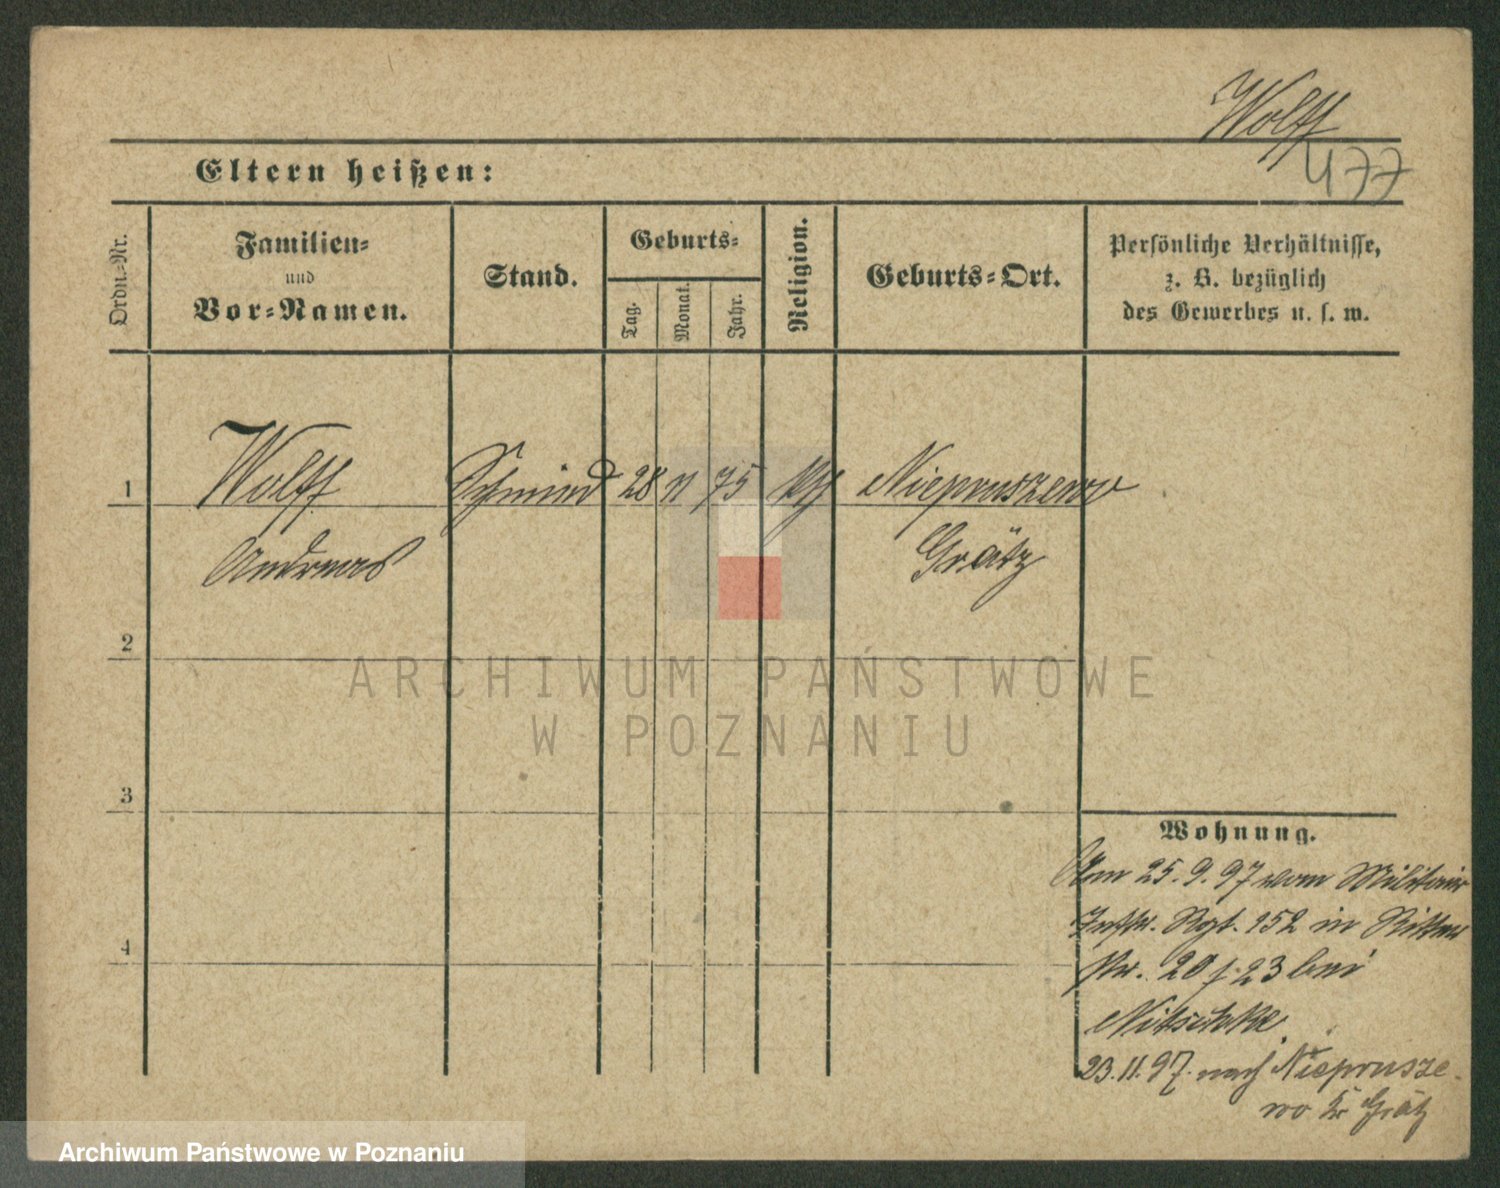 Wolff
477
Eltern heißen:
Ordn.-Nr.
Familien-
und
Vor-Namen.
Stand.
Geburts-
Tag.
Monat.
Jahr.
Religion.
Geburts-Ort.
Persönliche Verhältnisse,
z. B. bezüglich
des Gewerbes u. s. w.
1 Wolff Schmied 28 11 75 Niepruszewo
Andreas Grätz
2
ARCHIWUM PAŃSTWOWE
W POZNANIU
3
Wohnung.
Am 25.9.97 vom Militair
Rgt. 152 in
20 23 bei
Nitschke.
4
23.11.97. nach Nieprusze-
wo Kr Grätz
Archiwum Państwowe w Poznaniu